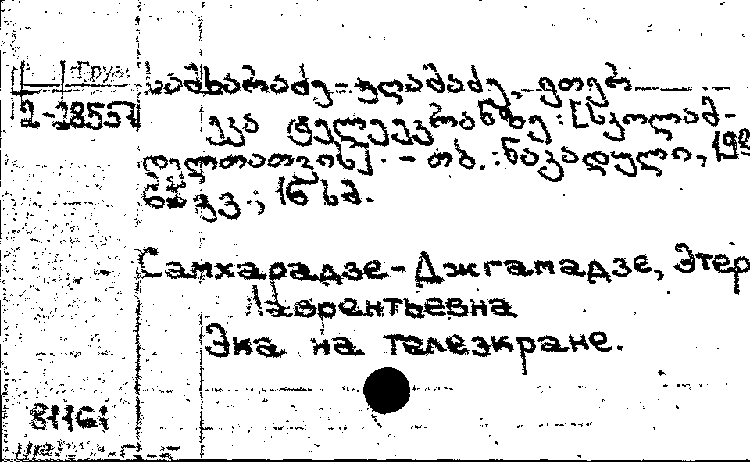 Груз.
2-28557
სამხარაძე-ჯღამაძე, ეთერ
ეკა ტელეეკრანზე: [სკოლამ-
დელთათვის]. - თბ.: ნაკადული, 198
გვ.; 16 სმ.
Самхарадзе-Джгамадзе, Этер
Лаврентьевна
Эка на телеэкране.
81161